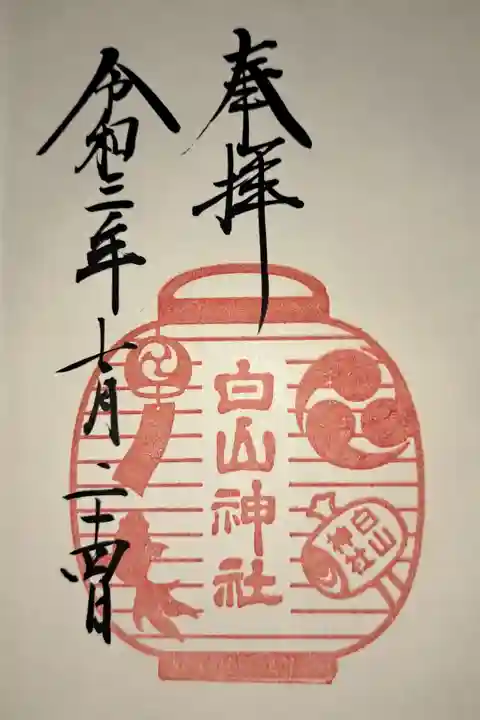 奉拝
白山神社
白山
神社
令和三年七月二十四日